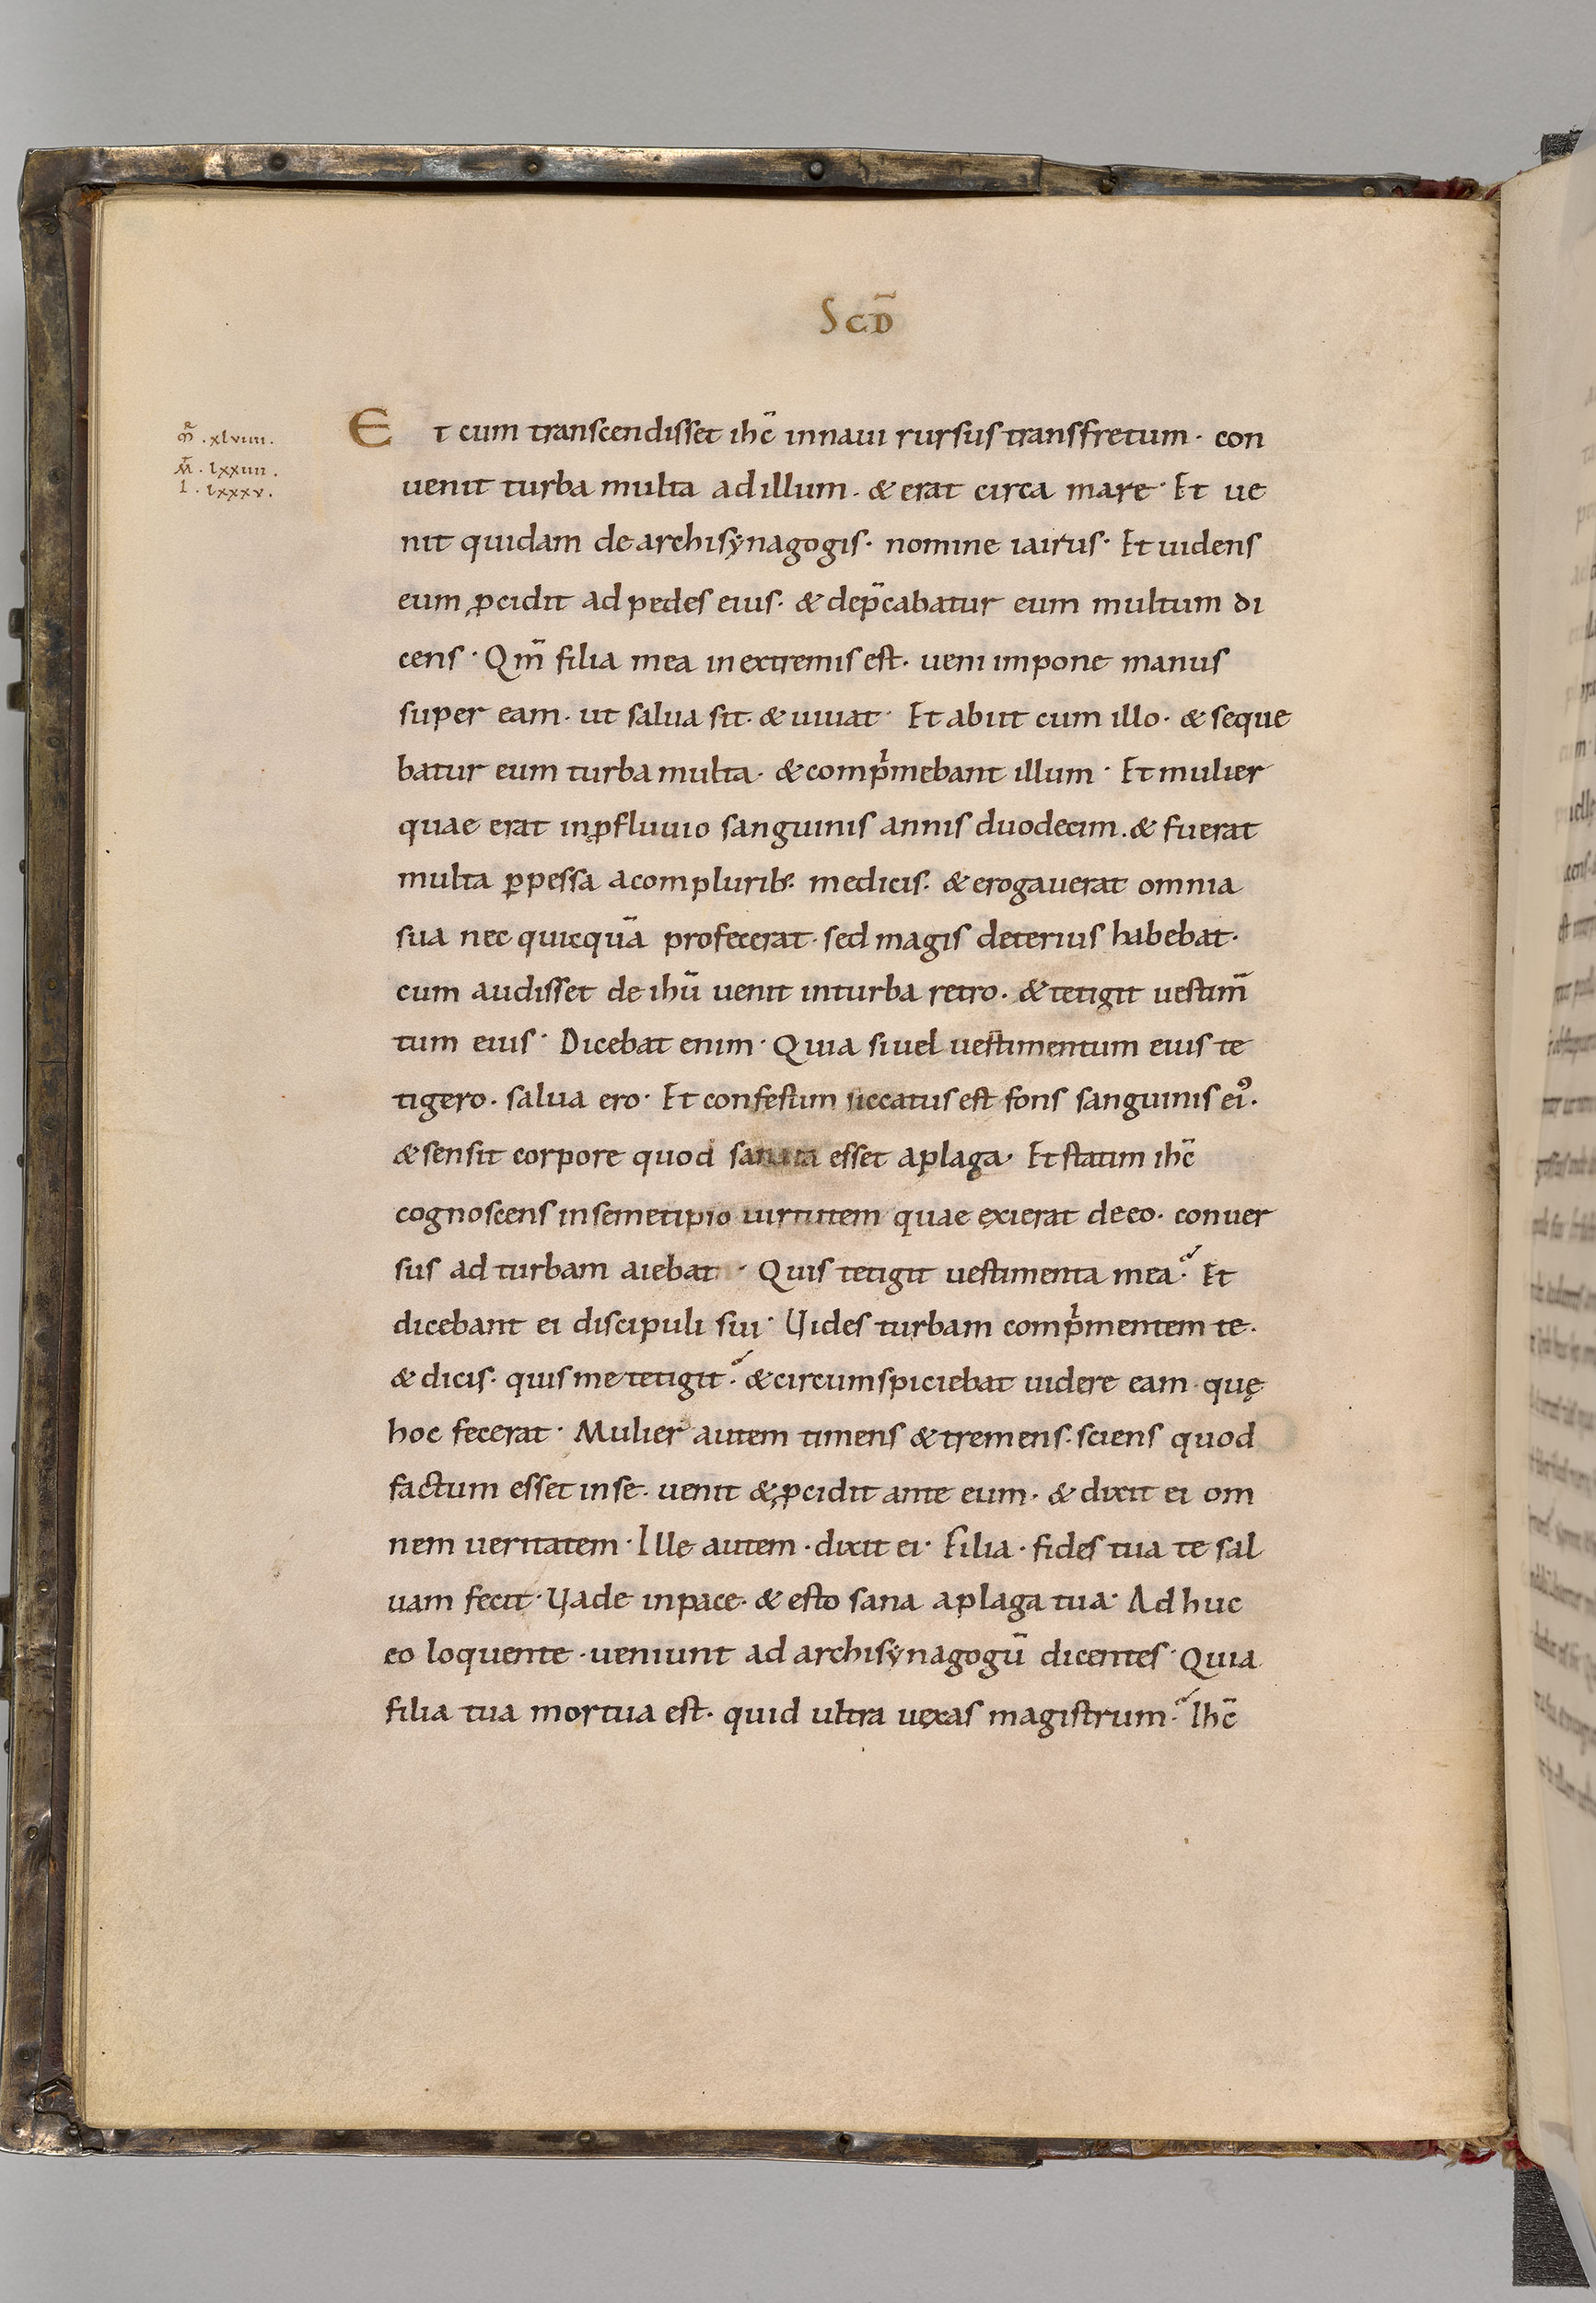 Scd̄
mr̄ .xlviiii.
m̄ . lxxiiii .
l . lxxxv.
Et cum transcendisset ihc̄ innaui rursus transfretum· con
uenit turba multa adillum· & erat circa mare· Et ue
nit quidam dearchisẏnagogis· nomine iairus· Et uidens
eum ꝓcidit ad pedes eius· & dep̄cabatur eum multum di
cens· Qm̄ filia mea inextremis est· ueni impone manus
super eam· ut salua sit· & uiuat· Et abiit cum illo· & seque
batur eum turba multa· & compͥmebant illum· Et mulier
quae erat inꝓfluuio sanguinis annis duodecim.& fuerat
multa ꝑpessa acompluribꝫ· medicis· & erogauerat omnia
sua nec quicquā profecerat· sed magis deterius habebat·
cum audisset de ihū uenit inturba retro· & tetigit uestim̄
tum eius· Dicebat enim· Quia siuel uestimentum eius te
tigero· salua ero· Et confestim siccatus est fons sanguinis eiꝰ·
& sensit corpore quod sanata esset aplaga· Et statim ihc̄
cognoscens insemetipso uirtutem quae exierat deeo· conuer
sus ad turbam aiebat· Quis tetigit uestimenta mea? Et
dicebant ei discipuli sui· Uides turbam compͥmentem te·
& dicis· quis me tetigit? & circumspiciebat uidere eam· quę
hoc fecerat· Mulier autem timens & tremens· sciens quod
factum esset inse· uenit & ꝓcidit ante eum· & dixit ei om
nem ueritatem· Ille autem· dixit ei· Filia· fides tua te sal
uam fecit· Uade inpace· & esto sana aplaga tua· Adhuc
eo loquente· ueniunt ad archisẏnagogū dicentes· Quia
filia tua mortua est· quid ultra uexas magistrum? Ihc̄